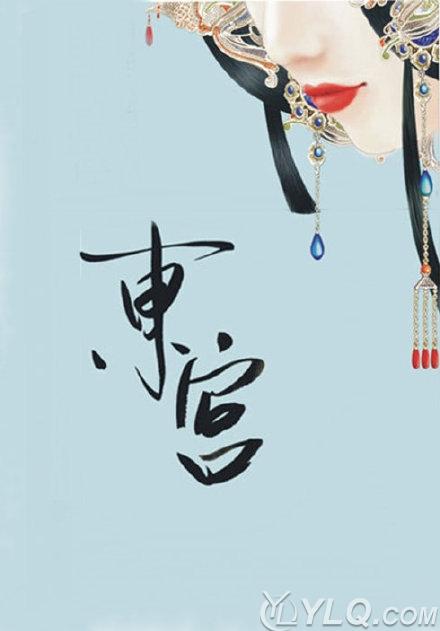 東宮
YLQ.COM